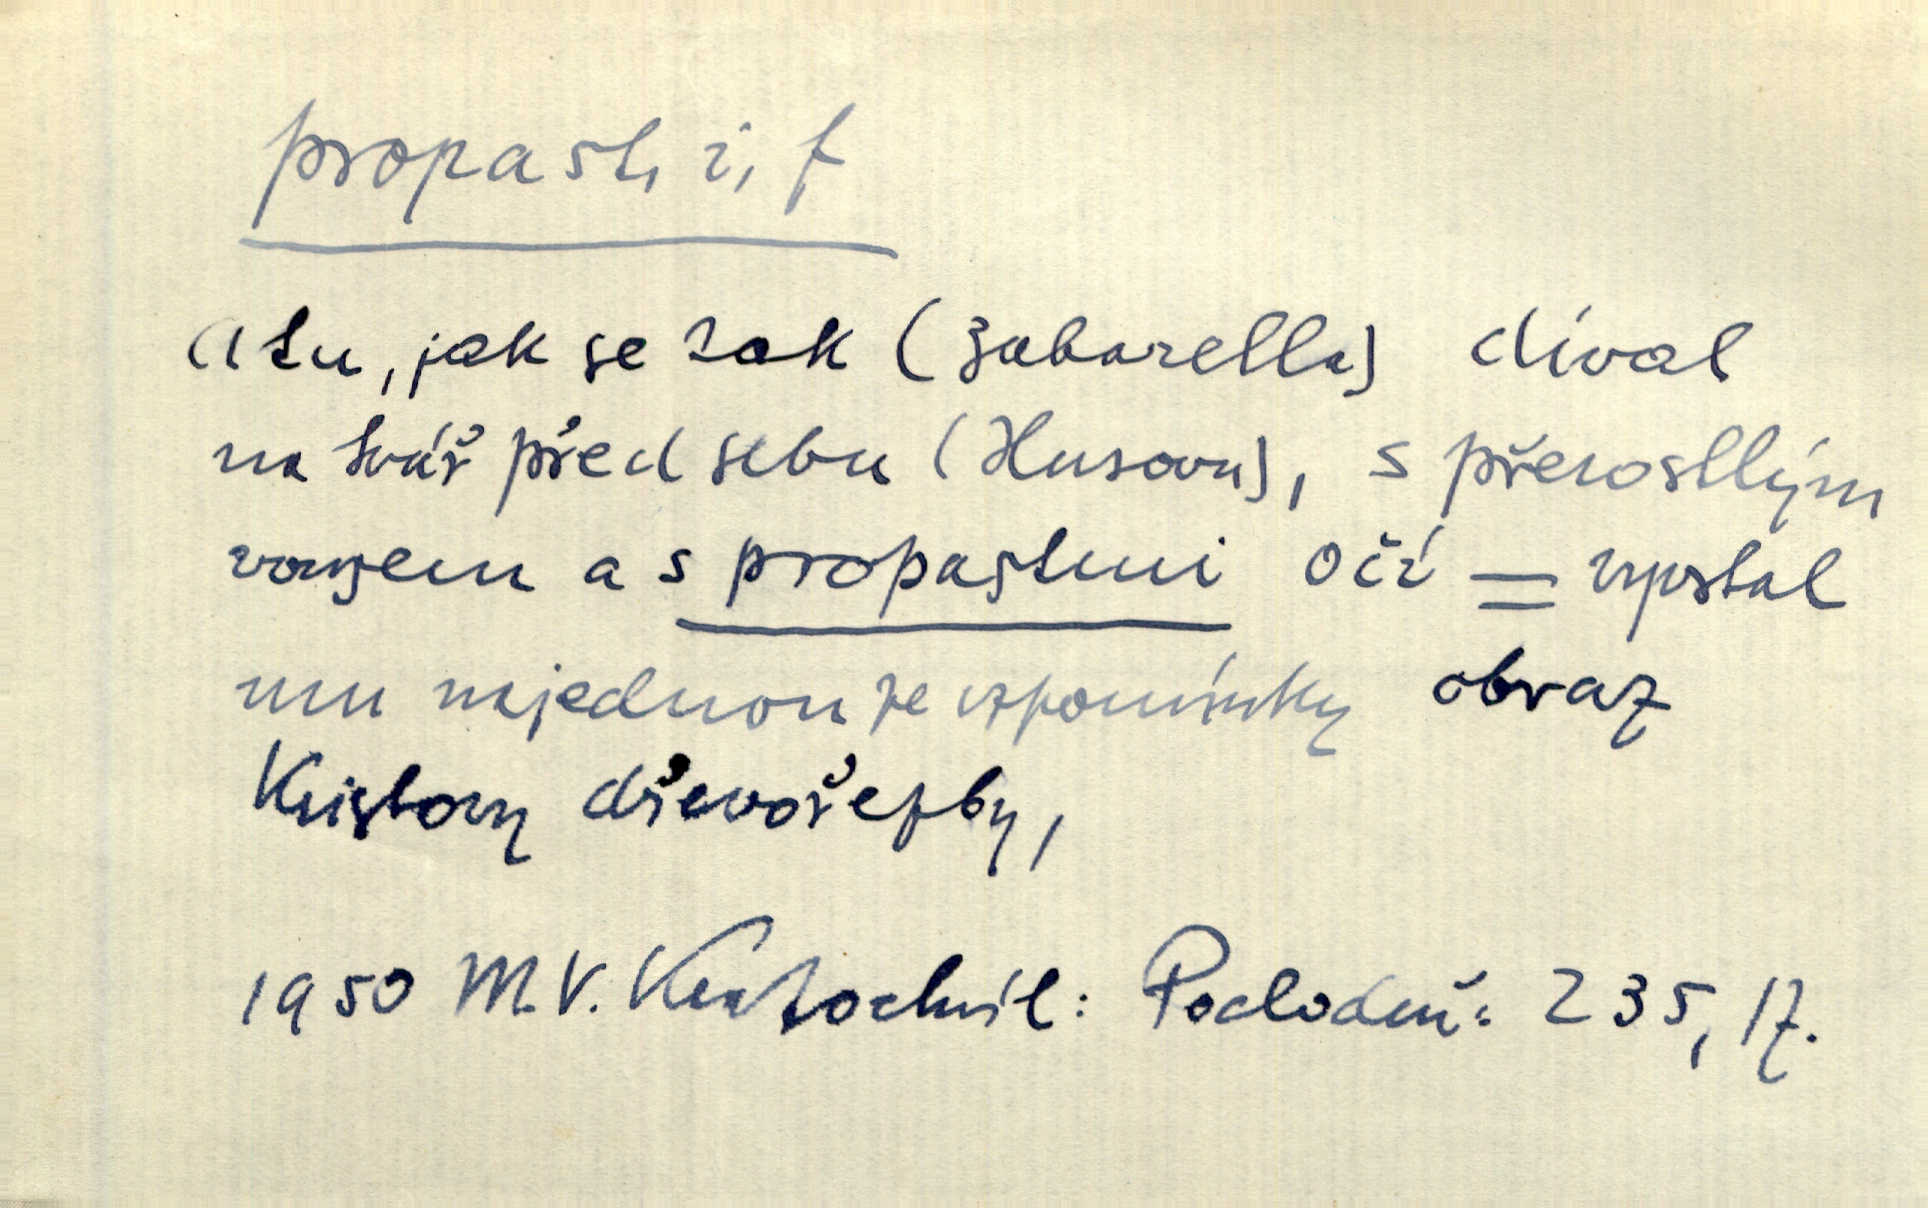 propast, i, f
A tu, jak se tak (Zabarella) díval
na tvář před sebou (Husovu), s přerostlým
vousem a s propastmi očí = vyvstal
mu najednou ze vzpomínky obraz
Kristovy dřevořezby,
1950 M. V. Kratochvil: Pochodeň: 235, 17.